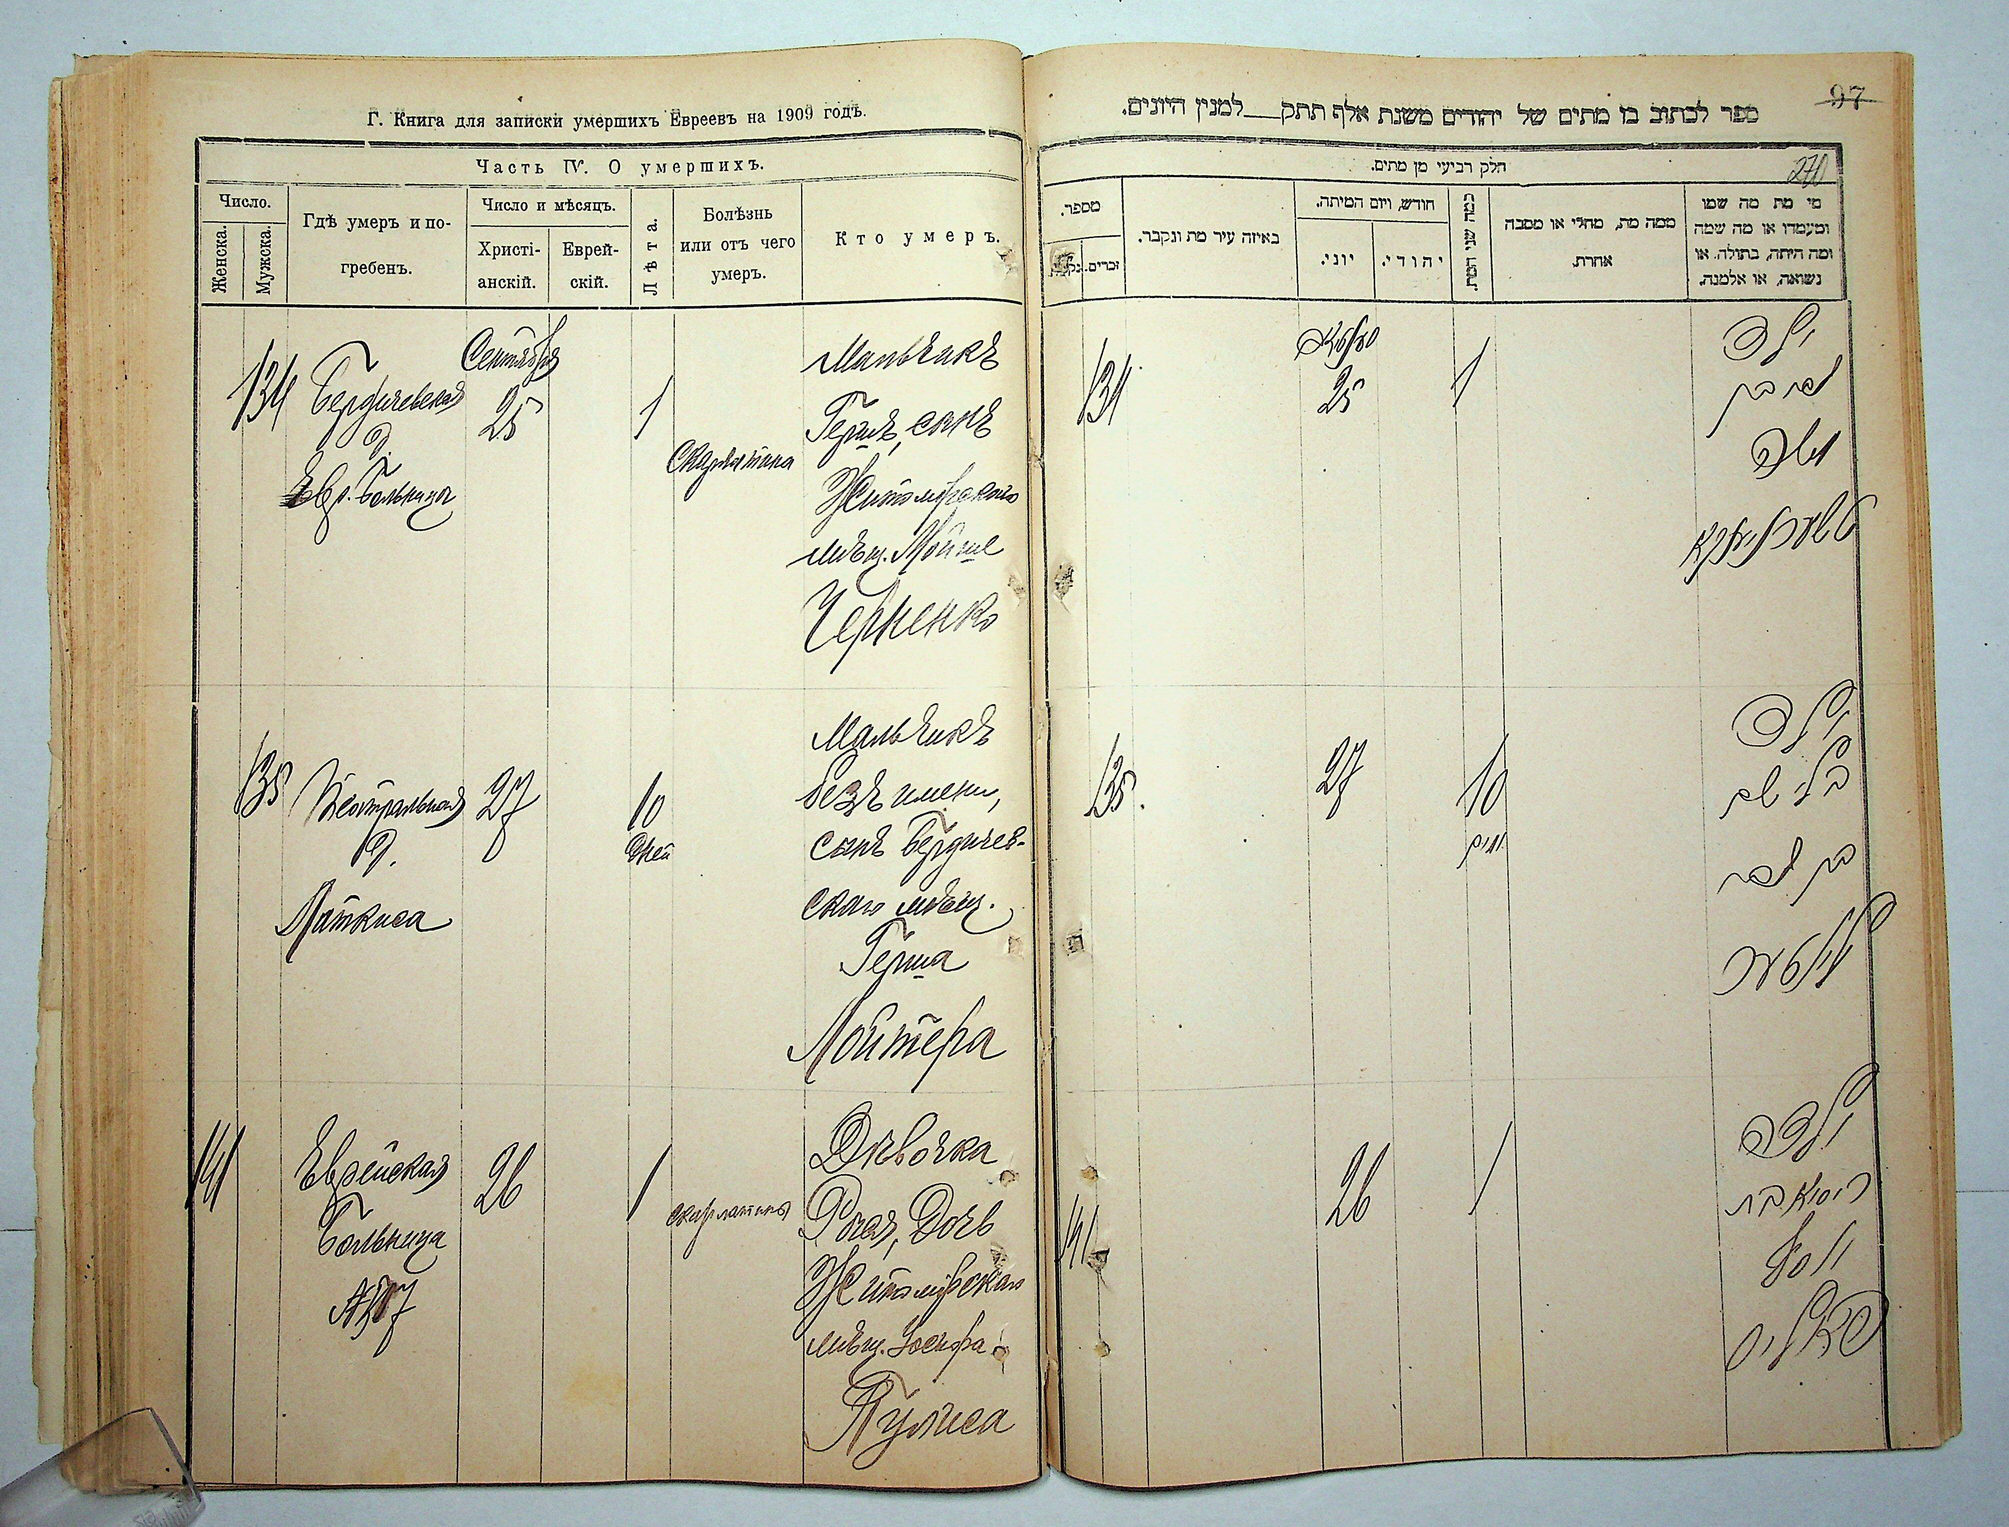 Г. Книга для записки умершихъ Евреевъ на 1909 годъ.
Часть IV. О умершихъ.
Число.
Женска.
Мужска.
Гдѣ умеръ и по-
гребенъ.
Число и мѣсяцъ.
Христі-
анскій.
Еврей-
скій.
Лѣта.
Болѣзнь
или отъ чего
умеръ.
Кто умеръ.
134
Бердичевская
д.
Евр. Больницы
Сентября
25
1
Скарлатина
Мальчикъ
Гершъ, сынъ
Житомірскаго
мѣщ. Мойше
Черненко
135
д.
27
10
дней
Мальчикъ
безъ имени,
сынъ Бердичев-
скаго мѣщ.
Герша
Лойтера
141
Еврейская
Больница
26
1
скарлатина
Дѣвочка
Рися, дочь
Житомірскаго
мѣщ. Іосифа
Пулиса
97
ספר לכתוב בו מתים של יהודים משנת אלף תתק__למנין היונים.
חלק רביעי מן מתים.
270
מספר.
זכרים.
באיזה עיר מת ונקבר.
חודש, ויום המיתה.
יוני.
יהודי.
כמה שני המת.
ממה מת, מחלי או מסבה
אחרת.
מי מת מה שמו
ומעמדו או מה שמה
ומה היתה, בתולה, או
נשואה, או אלמנה.
134
25
1
ילד
משה
135.
27
10
ימים
ילד
בלי שם
לויטער
141
26
1
ילדה
ריסיא בת
יוסף
פוליס